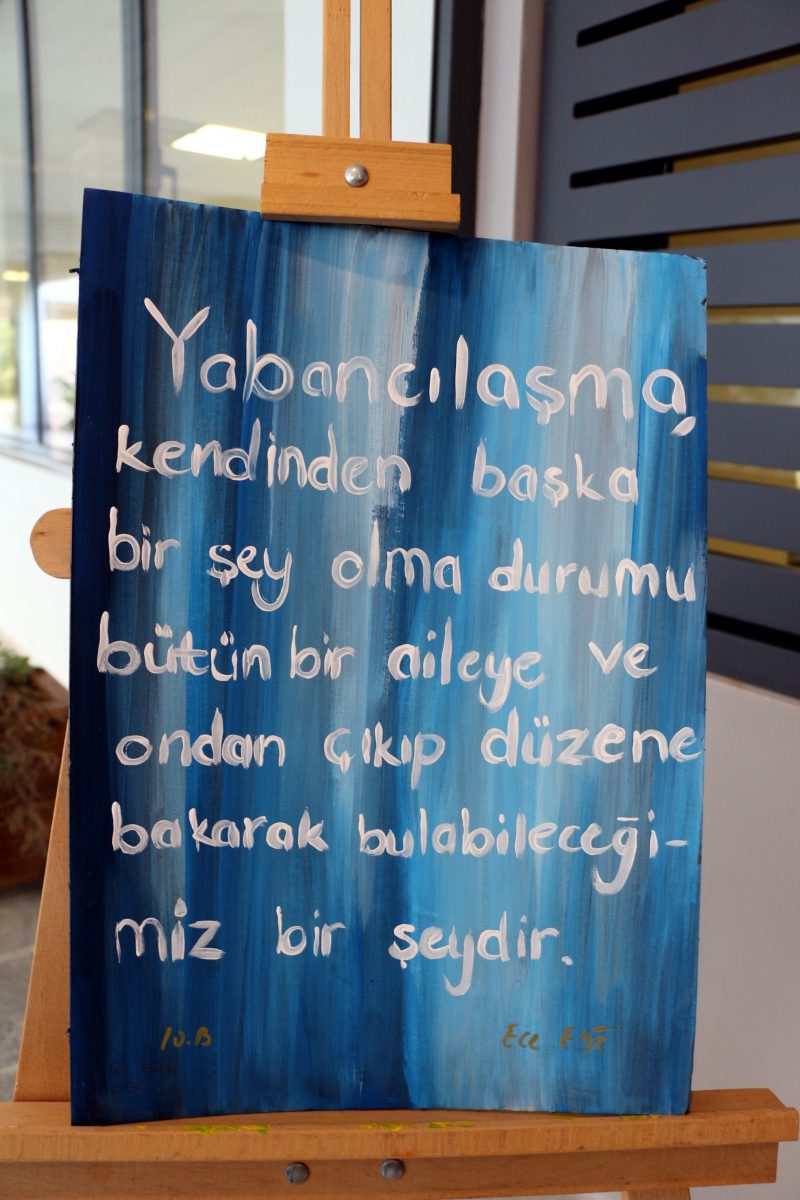 Yabancılaşma,
kendinden başka
bir şey olma durumu
bütün bir aileye ve
ondan çıkıp düzene
bakarak bulabileceği-
miz bir şeydir.
10.B Ece